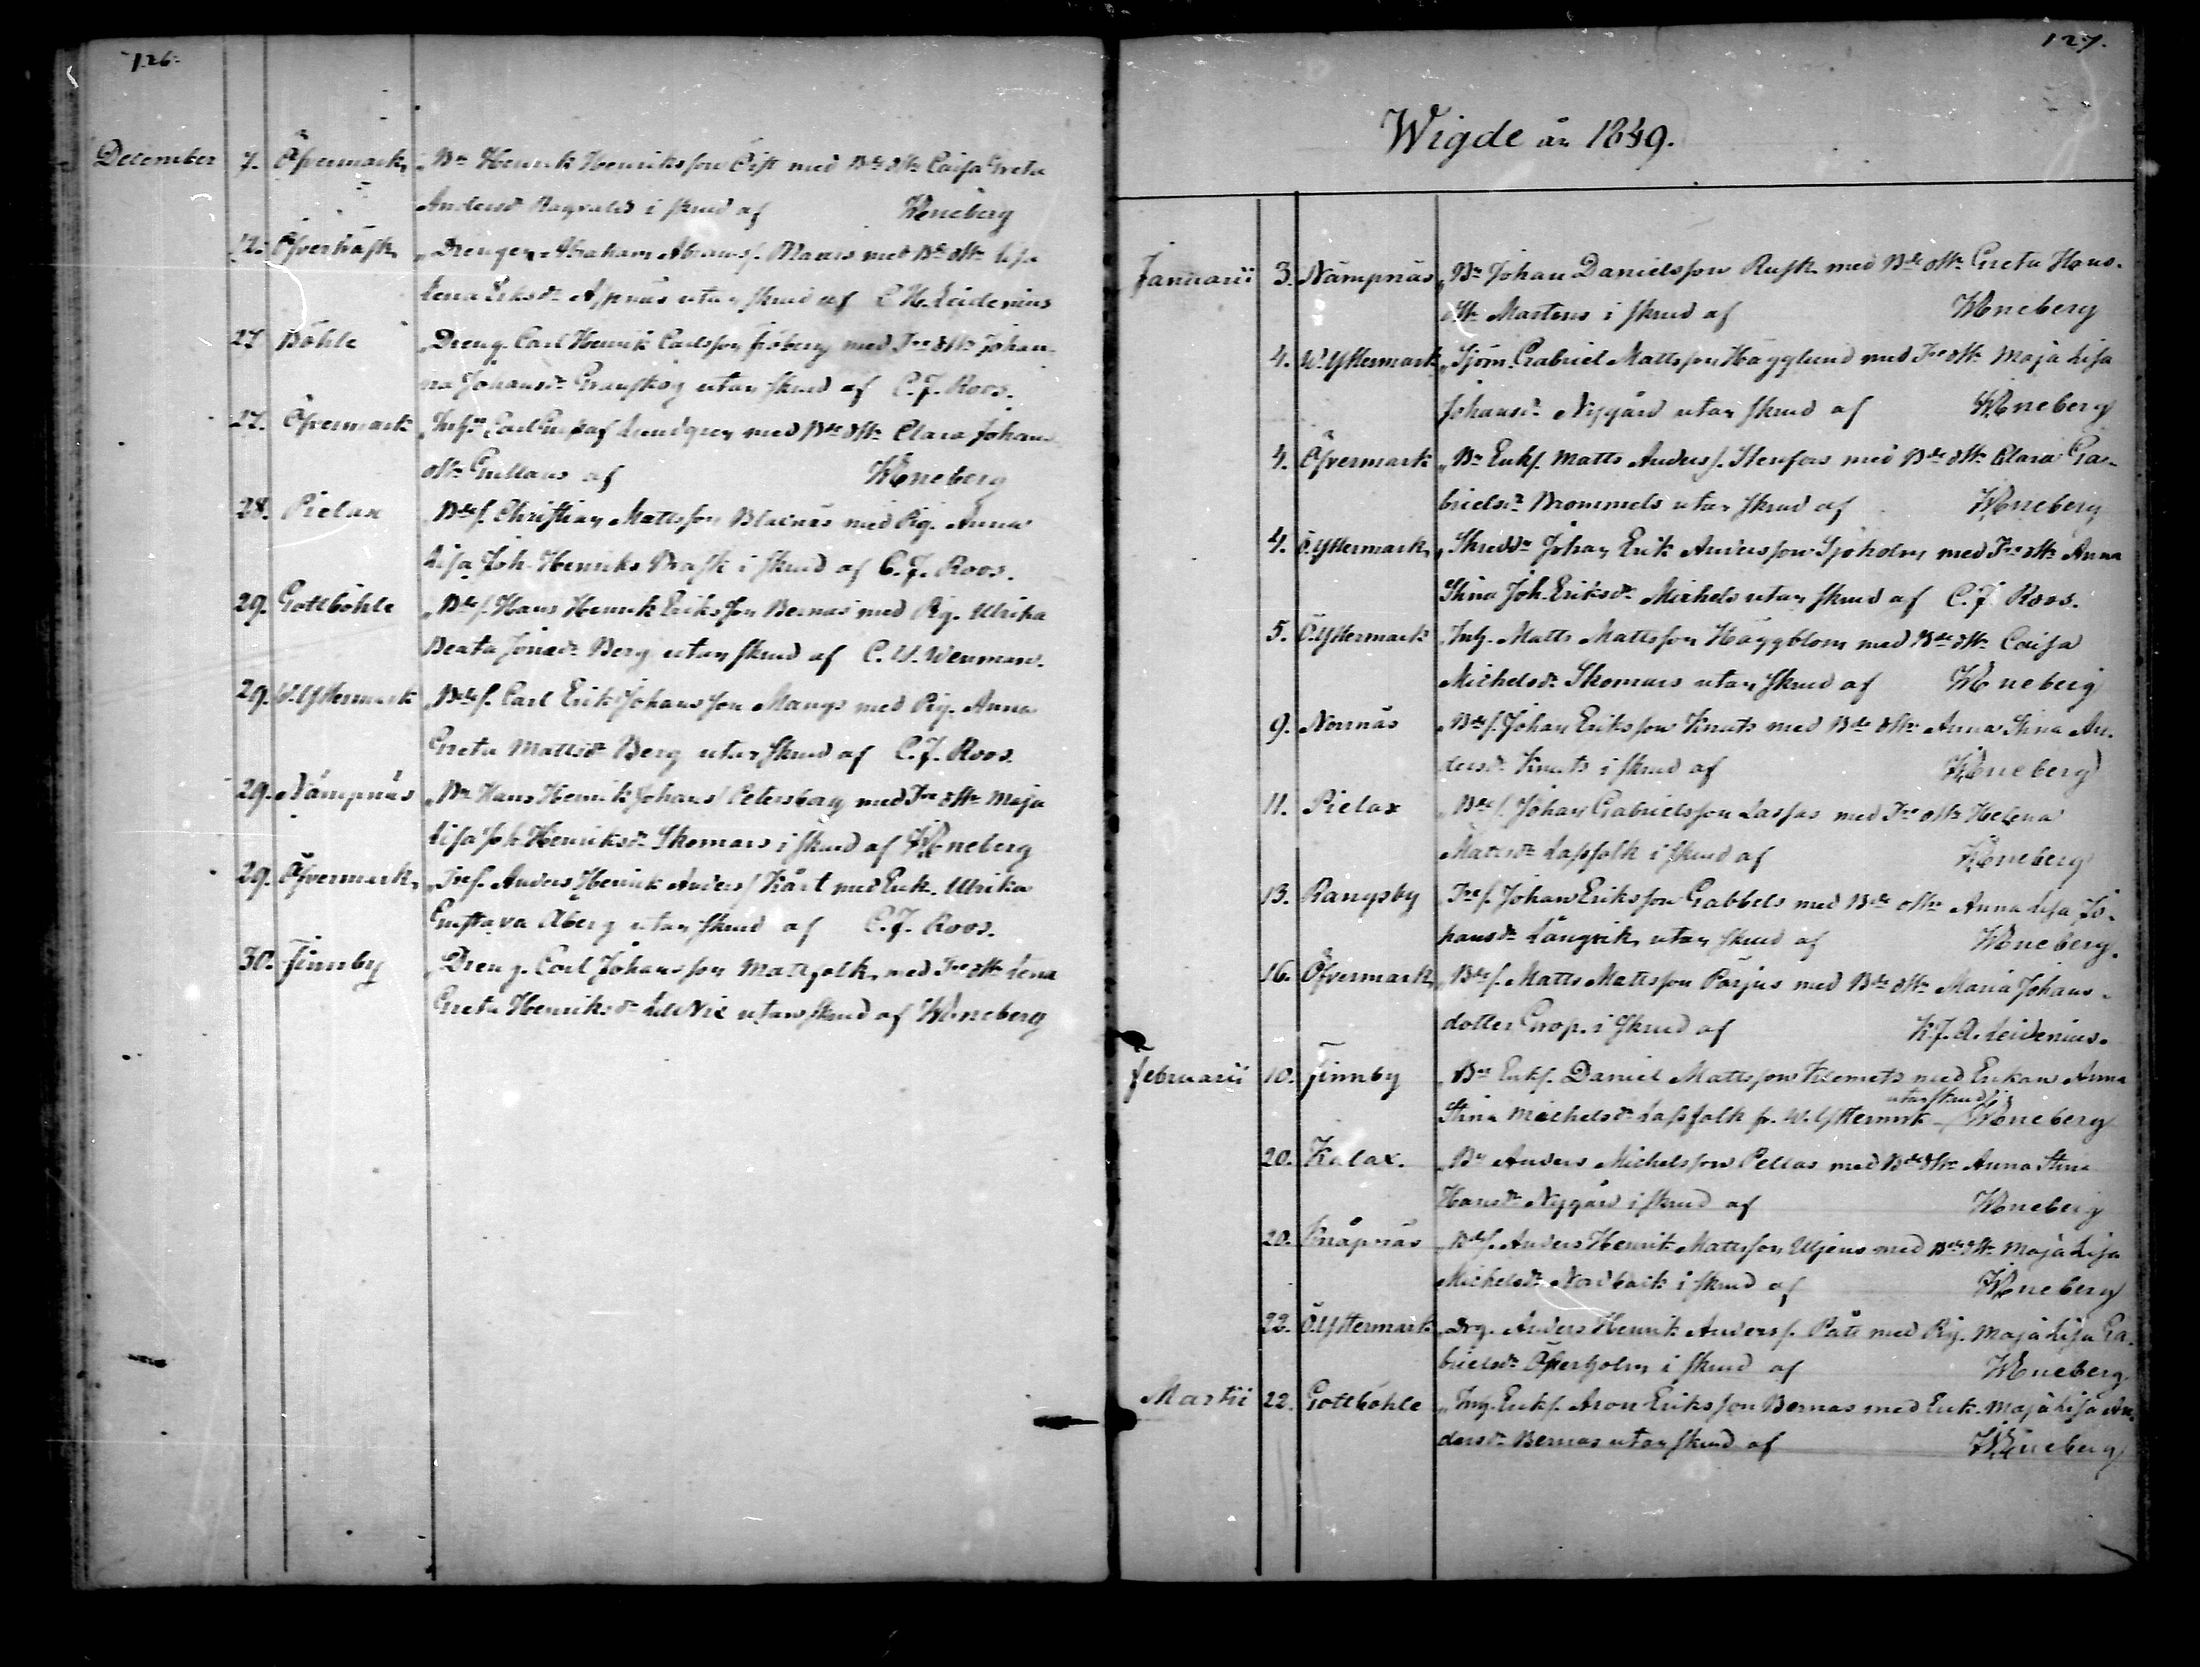 126.
December 7. Öfvermark, „Bn Henrik Henriksson Öist med Bde dtr Caisa Greta
Andersdr Ragvalds i skrud af Weneberg
12. Öfverträsk, „Drengen Abraham Abrahamss. med Bde dtr Lisa
Lena Eriksdr Aspnäs utan skrud af C. H. Leidenius
27 Böhle „Dreng. Carl Henrik Carlsson Sjöberg med Tre dtr Johan-
na Johansdr Granskog utan skrud af C. J. Roos.
27. Öfvermark „Inhs Carl Gustaf Lundgren med Bde dtr Clara Johans
dtr Grillans af Weneberg
28. Pielax „Bdes. Christian Mattsson Blacnäs med Pig. Anna
Lisa Joh. Henriks Brask i skrud af C. J. Roos.
29. Gottböhle „Bdes. Hans Henrik Eriksson Bernas med Pig. Ulrika
Beata Jönsdr Berg utan skrud af C. W. Wenman.
29. W. Yttermark „Bdes. Carl Erik Johansson Mangs med Pig. Anna
Greta Mattsdr Berg utan skrud af C. J. Roos.
29. Nämpnäs „Bn Hans Henrik Johanss. Petersborg med Tre dtr Maja
Lisa Joh. Henriksdr Skomars i skrud af Weneberg
29. Öfvermark, „Tres. Anders Henrik Anderss. Kårt med Enk. Ulrika
Gustava Åberg utan skrud af C. J. Roos.
30. Finnby „Dreng. Carl Johansson Mattfolk, med Tre dtr Lena
Greta Henriksdr LillNix utan skrud af Weneberg
127.
Wigde år 1849.
Januarii 3. Nämpnäs „Bn Johan Danielsson Rusk med Bde dtr Greta Hans-
dtr Martens i skrud af Weneberg
4. W. Yttermark „Sjöm. Gabriel Mattsson Hägglund med Tre dtr Maja Lisa
Johansdr Nygård utan skrud af Weneberg
4. Öfvermark „Bn Enkl. Matts Anderss. Stenfors med Bde dtr Clara Ga-
brielsdr Brommels utan skrud af Weneberg
4. Ö. Yttermark, „Skreddr Johan Erik Andersson Sjöholm med Tre dtr Anna
Stina Joh. Eriksdr Michels utan skrud af C. J. Roos.
5. Ö. Yttermark „Inh. Matts Mattsson Häggblom med Bde dtr Caisa
Michelsdr Skomars utan skrud af Weneberg
9. Norrnäs „Bdes. Johan Eriksson Knuts med Bde dtr Anna Stina An-
dersdr Knuts i skrud af Weneberg
11. Pielax „Bdes. Johan Gabrielsson Lassas med Tre dtr Helena
Matsdr Lassfolk i skrud af Weneberg
13. Rangsby Tres. Johan Eriksson Gabbels med Bde dtr Anna Lisa Jo-
hansdr Långvik, utan skrud af Weneberg.
16. Öfvermark, „Bdes. Matts Mattsson Pärjus med Bde dtr Maria Johans-
dotter Grop. i skrud af K. J. A. Leidenius.
Februarii 10. Finnby „Bn Enkl. Daniel Mattsson Klemets med Enkan Anna
utan skrud
Stina Michelsdr Lassfolk fr. W. Yttermrk Weneberg
20. Kalax. „Bn Anders Michelsson Pellas med Bde dtr Anna Stina
Hansdr Nygård i skrud af Weneberg
20. Knåpnäs „Bdes. Anders Henrik Mattsson Uljens med Bde dtr Maja Lisa
Michelsdr Nordbäck i skrud af Weneberg
22. Ö. Yttermark „Drg. Anders Henrik Anderss. Påte med Pig. Maja Lisa Ga-
brielsdr Österholm i skrud af Weneberg.
Martii 22. Gottböhle „Inh. Enkl. Aron Eriksson Bernas med Enk. Maja Lisa An-
dersdr Bernas utan skrud af Weneberg